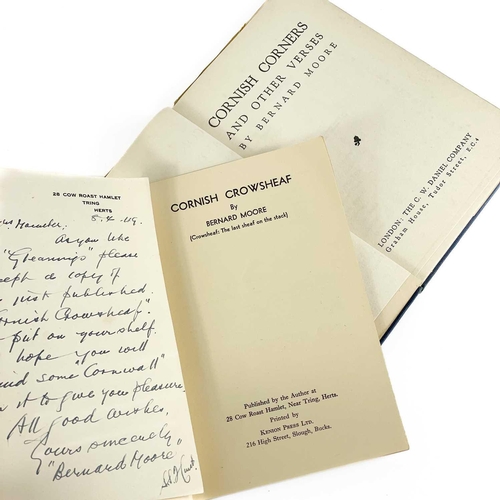 CORNISH CORNERS
AND OTHER VERSES
BY BERNARD MOORE
LONDON: THE C. W. DANIEL COMPANY
Graham House, Tudor Street, E.C.4
28 COW ROAST HAMLET
TRING
HERTS
5.4.49.
As you like
"Gleanings" please
a copy of
just published
Cornish Crowsheaf".
put on your shelf.
hope you will
some "Cornwall"
it to give you pleasure
All good wishes,
Yours sincerely
"Bernard Moore"
CORNISH CROWSHEAF
By
BERNARD MOORE
(Crowsheaf: The last sheaf on the stack)
Published by the Author at
28 Cow Roast Hamlet, Near Tring, Herts.
Printed by
KENION PRESS LTD.
216 High Street, Slough, Bucks.